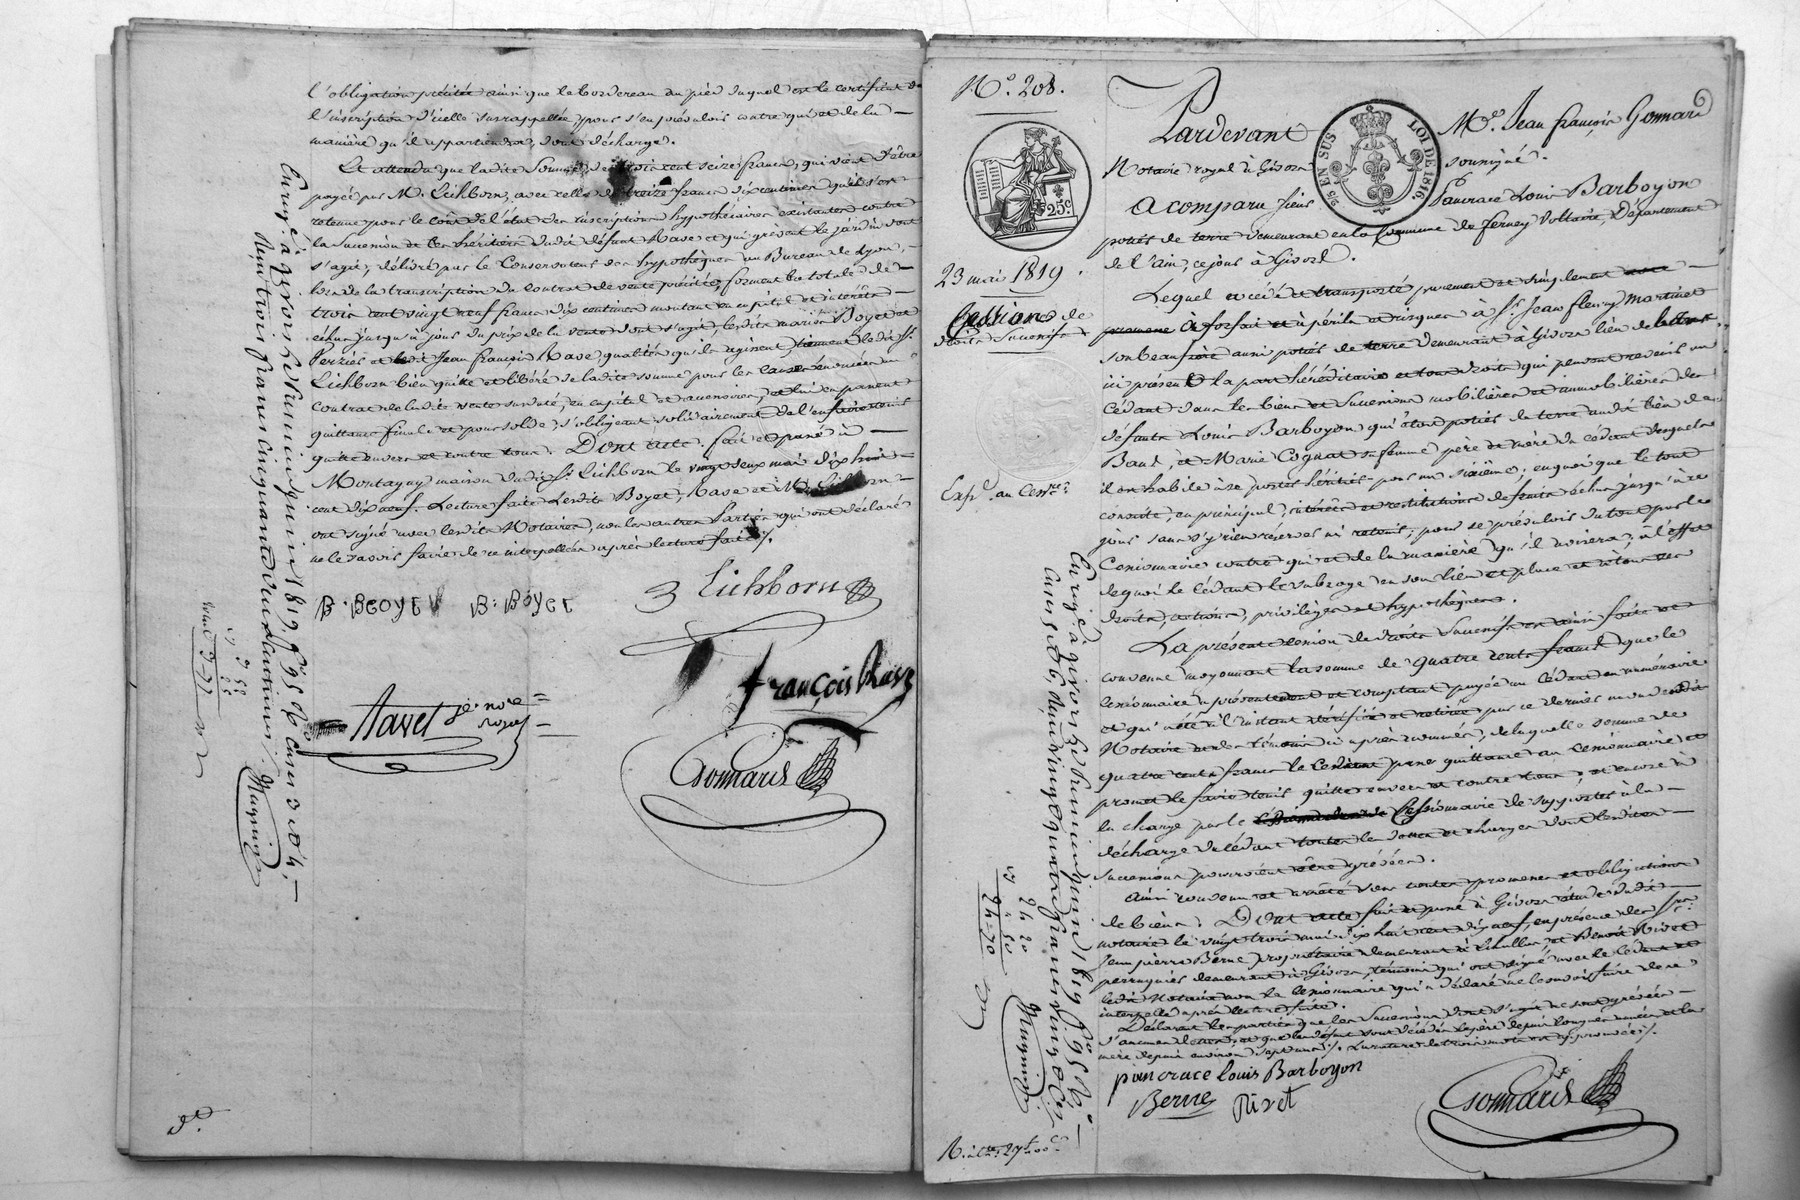 l'obligation précitée ainsi que le bordereau au pied duquel est le certificat de
l'inscription d'icelle surrappellée, pour s'en prévaloir contre qui et de la
manière qu'il appartiendra, dont décharge.
Et attendu que ladite somme de trois cent seize francs, qui vient d'être
payée par M. Eichborn, avec celle de treize francs dix centimes qu'il s'est
retenue pour le coût de l'état des inscriptions hypothécaires existantes contre
la succession et les héritiers dudit défunt Rave et qui grèvent le jardin dont
s'agit, délivré par le Conservateur des hypothèques au Bureau de Lyon,
lors de la transcription du contrat de vente précité, forment la totale de
trois cent vingt neuf francs dix centimes montant en capital et intérêts
échus jusqu'à jour du prix de la vente dont s'agit, lesdits mariés Boyet et
et ledit Jean François Rave, qualités qu'ils agissent, tiennent ledit Sr.
Eichborn bien quitte et libéré de ladite somme pour les causes énoncées au
contrat de ladite vente surdaté, en capital et accessoires, et lui en passent
quittance finale et pour solde, s'obligeant solidairement de l'en faire tenir
quitte envers et contre tous. Dont acte. fait et passé à
Montagny maison dudit Sr. Eichborn le vingt deux mai dix huit
cent dix neuf. Lecture faite lesdits Boyet, Rave et M. Eichborn
ont signé avec lesdits Notaires, non les autres Parties qui ont déclaré
ne le savoir faire de ce interpellées après lecture faite ./.
B. Boyet B. Boyet
Eichborn
François Rave
Ravet
Gonnard
Enrgé à givors le huit juin 1819. f° 95 Vo. cases 3 et 4,
Reçu trois francs cinquante deux centimes ./.
N°. 208.
25c.
23 mai 1819.
Cession de
droits Successifs
Expé. au Cesre.
25 EN SUS
LOI DE 1816.
Pardevant Me. Jean François Gonnard
Notaire royal à Givors soussigné.
A comparu sieur Pancrace Louis Barboyon
potier de terre demeurant en la Commune de Ferney Voltaire, Département
de l'ain, ce jour à Givors.
Lequel a cédé et transporté purement et simplement
à forfait et à périls et risques à Sr. Jean Fleury Martinet
son beau frère aussi potier de terre demeurant à Givors lieu de
ici présent la part héréditaire et tous droits qui peuvent revenir au
Cédant dans les biens et Successions mobilières et immobilières des
défunts Louis Barboyon qui était potier de terre audit lieu de
Bans, et Marie Cognat sa femme père et mère du cédant desquels
il est habile à se porter héritier pour un sixième; en quoi que le tout
consiste, en principal, intérêts et restitutions de fruits échus jusqu'à ce
jour sans s'y rien réserver ni retenir; pour se prévaloir du tout par le
Cessionnaire contre qui et de la manière qu'il avisera; à l'effet
de quoi le Cédant le subroge en son lieu et place et à tous ses
droits, actions, privilèges et hypothèques.
La présente cession de droits Successifs est ainsi faite et
convenue moyennant la somme de quatre cents francs que le
Cessionnaire a présentement et comptant payée au Cédant en numéraire
et qui a été à l'instant vérifiée et retirée par ce dernier au vu dudit
Notaire et des témoins ci après nommés, de laquelle somme de
quatre cents francs le Cédant passe quittance au Cessionnaire et
promet le faire tenir quitte envers et contre tous; et encore à
la charge par le Cessionnaire de supporter à la
décharge du Cédant toutes les dettes et charges dont lesdites
Successions pourroient être grevées.
Ainsi convenu et arrêté sous toutes promesses et obligations
de biens. Dont acte fait et passé à Givors étude dudit
notaire le vingt trois mai dix huit cent dix neuf, en présence des Srs.
Jean pierre Berne propriétaire demeurant à Echallas, et Benoit Rivet
perruquier demeurant à Givors, témoins qui ont signé avec le Cédant et
ledit Notaire non le Cessionnaire qui a déclaré ne le savoir faire de ce
interpellé après lecture faite.
Déclarant les parties que les Successions dont s'agit ne sont grevées
d'aucunes dettes, et que les défunts sont décédés le père depuis longues années et la
mère depuis environ sept ans ./. La rature de trois mots est approuvée ./.
pancrace louis Barboyon
Berne Rivet
Gonnard
Enrgé à givors le huit juin 1819 f° 95 Vo.
cases 5 et 6, Reçu vingt quatre francs vingt cs.